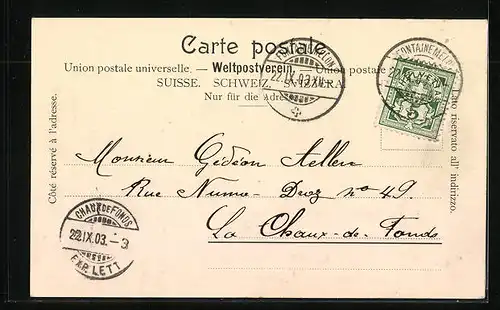 Carte postale
Union postale universelle. — Weltpostverein. — Unione postale
SUISSE. SCHWEIZ. SVIZZERA.
Nur für die Adresse
Côté réservé à l'adresse.
Lato riservato all' indirizzo.
22.IX.03.XII
FONTAINEMELON
5
Monsieur Gédéon Aellen
Rue Numa-Droz nº 49.
La Chaux-de-Fonds
CHAUX DE FONDS
22.IX.03.-3
EXP. LETT.